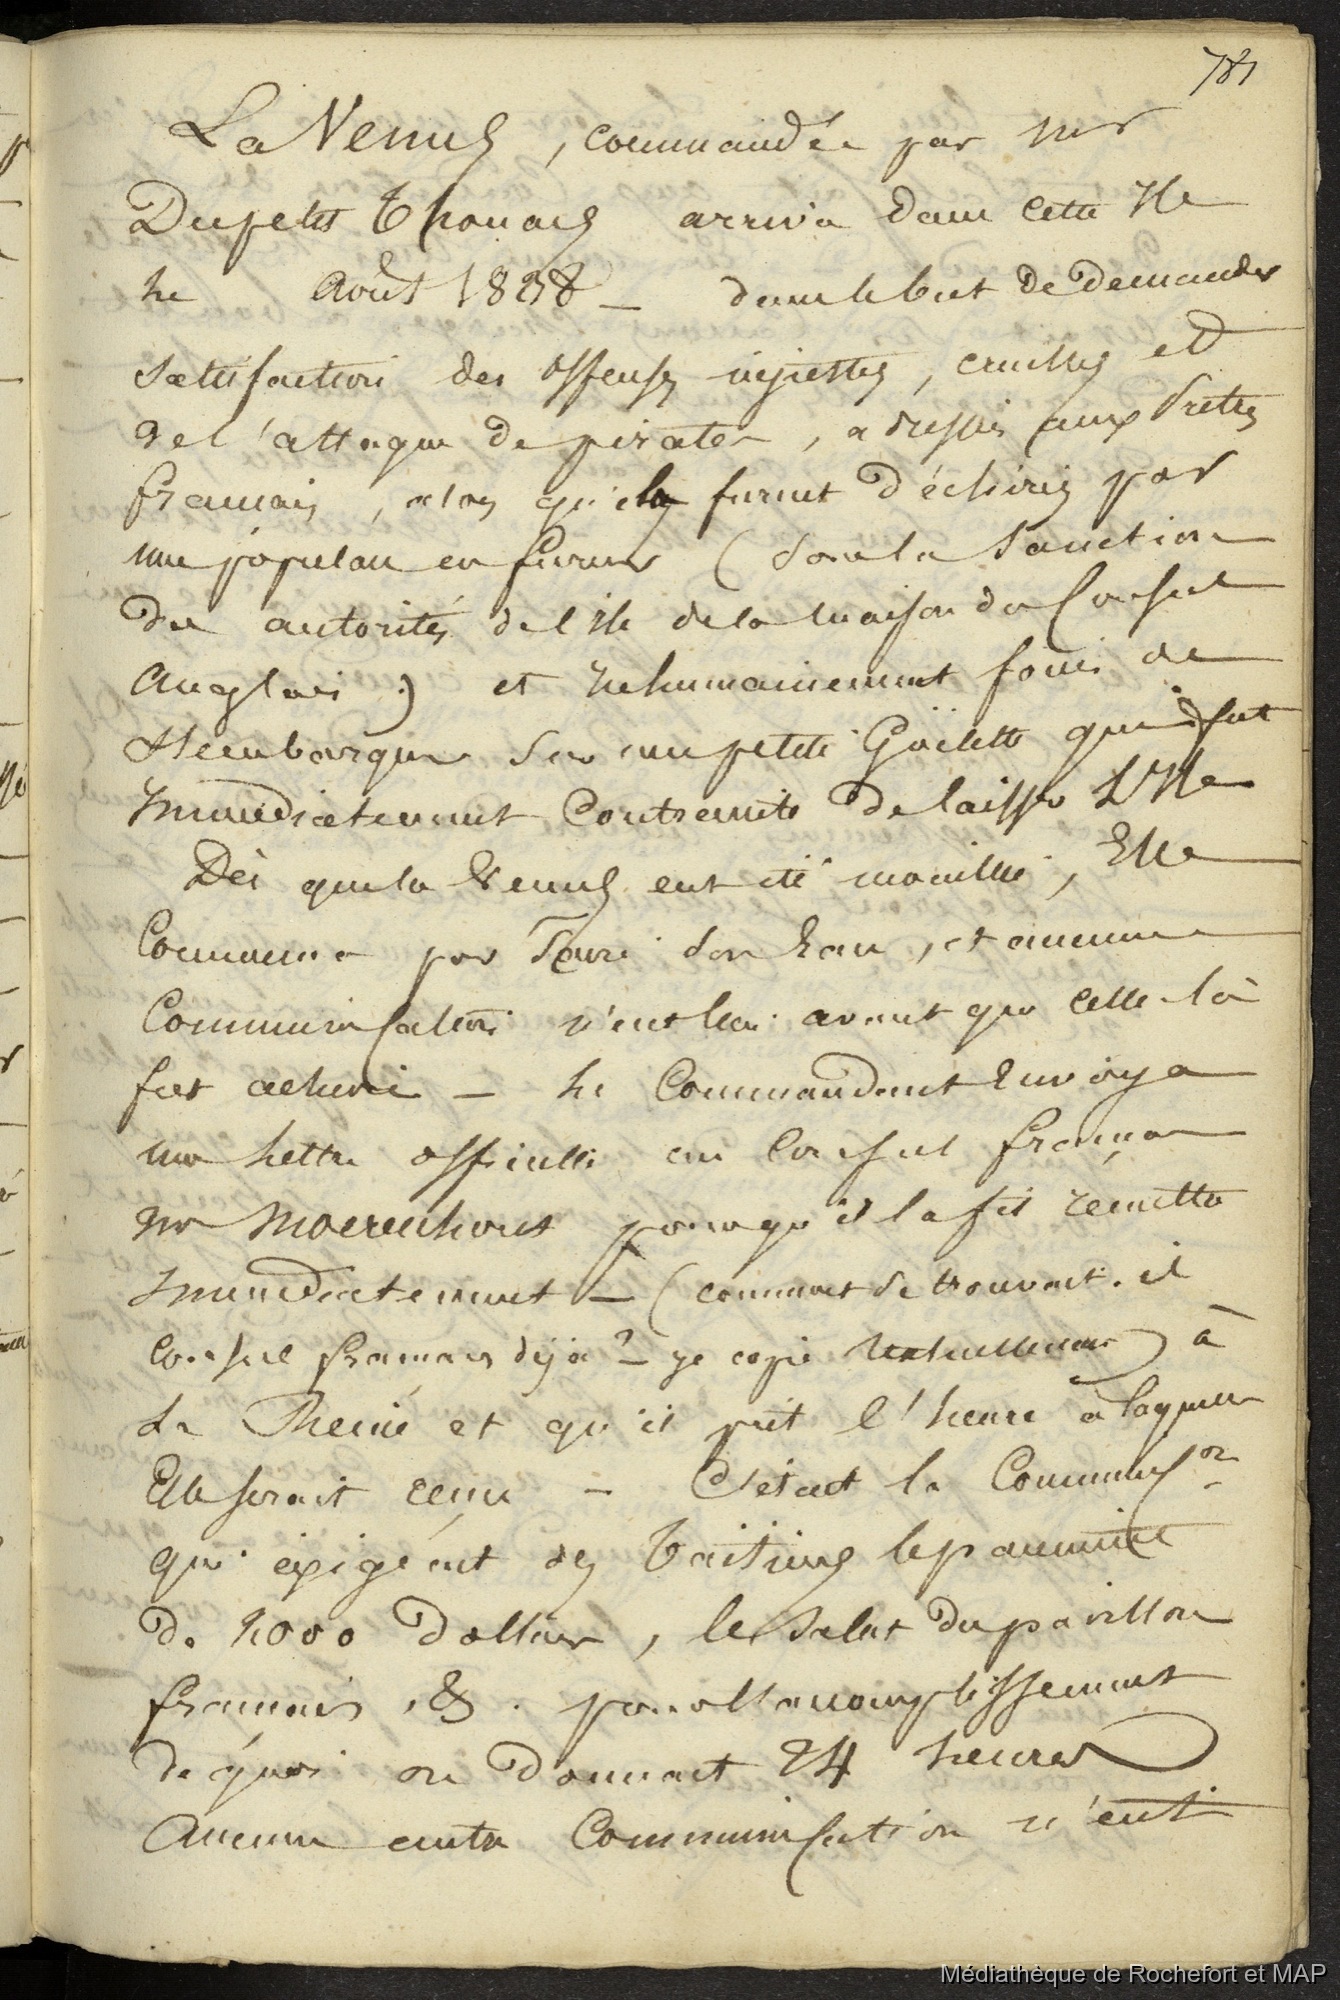 781
La Venus, commandée par Mr
Dupetit Thouars arriva dans cette Ile
le Août 1838 — dans le but de demander
satisfaction des offenses injustes, cruelles et
de l'attaque de pirates, a dressés aux Pretres
français, alors qu'ils furent déchirés par
une populace en fureur (sous la sanction
des autorités de l'ile de la maison du Consul
Anglais.) et inhumainement forcés de
s'embarquer sur une petite Goëlette qui fut
Immediatement Contrainte de laisser L'Ile
Dès que la Venus eut été mouillée, Elle
Commença par faire son Eau, et aucune
Communication n'eut lieu avant que celle-là
fut achevée — Le Commandant Envoya
une Lettre officielle au Consul français
Mr Moerenhout pour qu'il la fit remettre
Immediatement — (comment se trouvait-il
Consul français déjà? — je copie textuellement) à
La Reine et qu'il prit l'heure à laquelle
Elle serait remise — C'était la Commission
qui exigeait des Taitiens le paiement
de 2000 Dollars, le salut du pavillon
français, &. pour l'accomplissement
de quoi on donnait 24 heures
Aucune autre Communication n'eut
Médiathèque de Rochefort et MAP